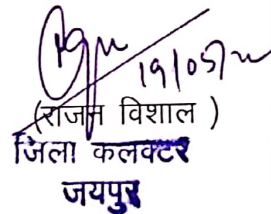 19/05/22
(राजन विशाल )
जिला कलक्टर
जयपुर